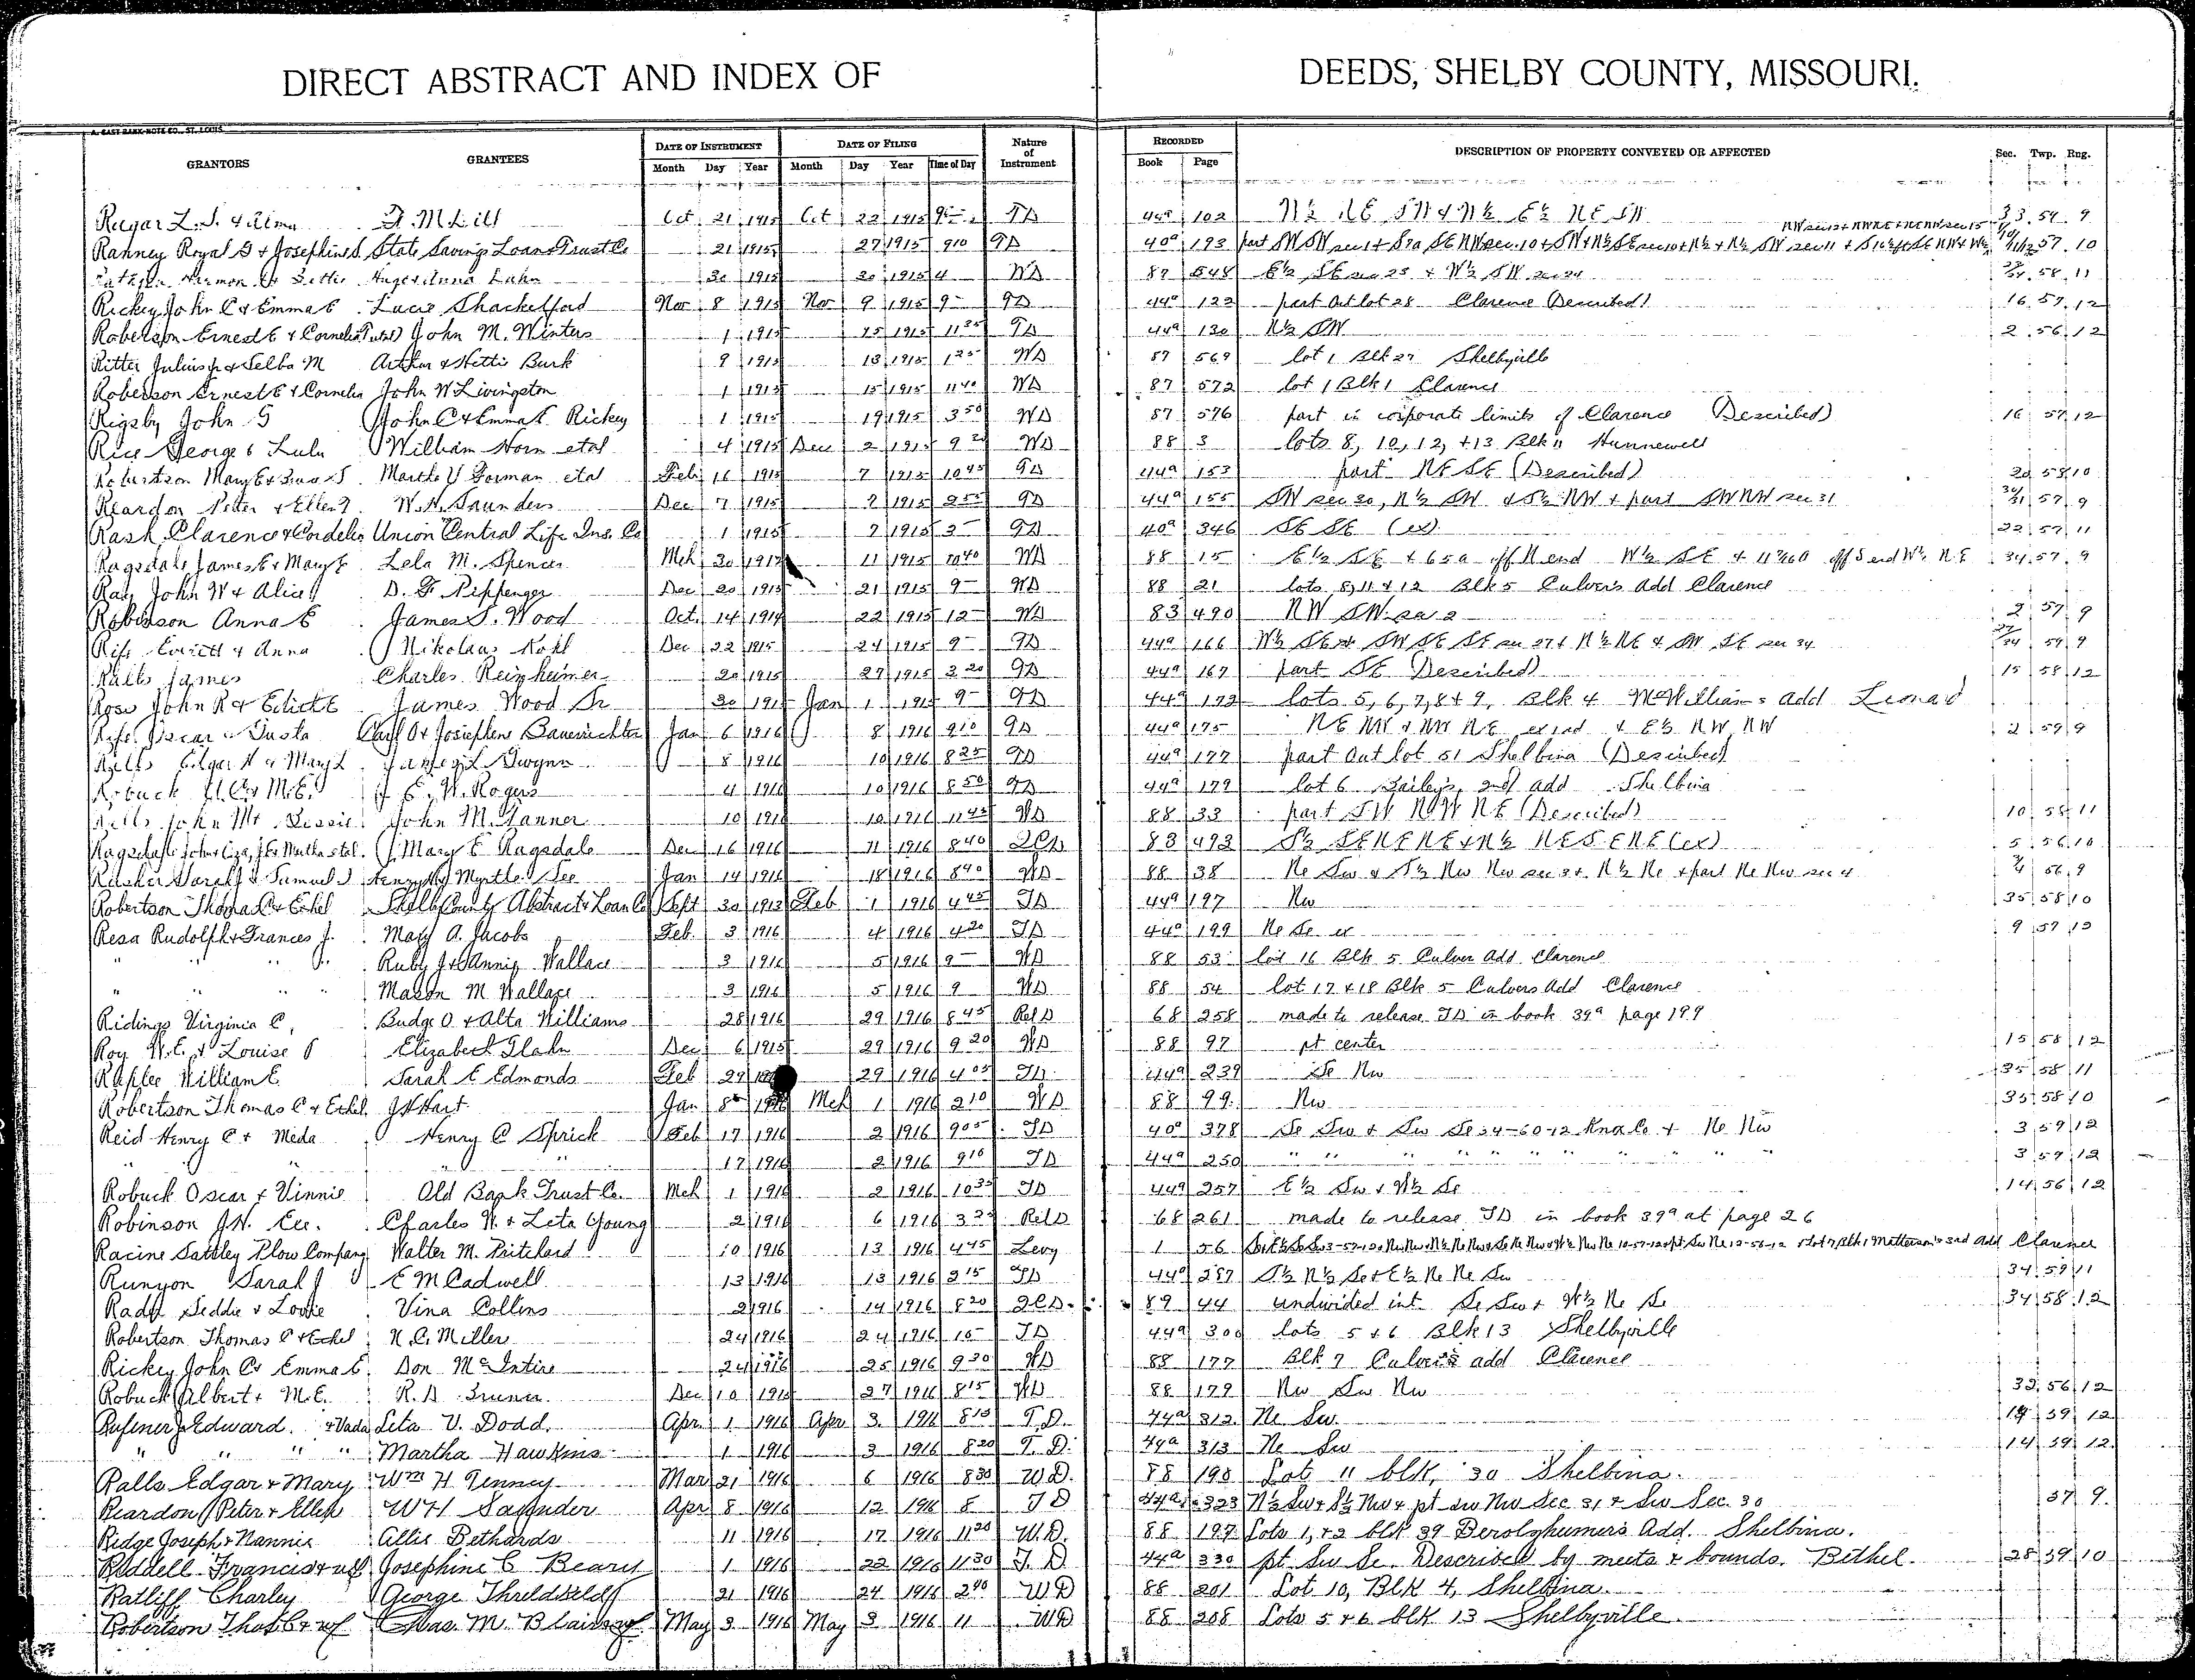 DIRECT ABSTRACT AND INDEX OF DEEDS, SHELBY COUNTY, MISSOURI.
GRANTORS GRANTEES DATE OF INSTRUMENT Month Day Year DATE OF FILING Month Day Year Time of Day Nature of Instrument RECORDED Book Page DESCRIPTION OF PROPERTY CONVEYED OR AFFECTED Sec. Twp. Rng.
Oct 21 1915 Oct 22 1915 TD 44a 102 33 54 9
Ranney Royal G & Josephine S State Savings Loan & Trust Co 21 1915 27 1915 910 TD 40a 193 57 10
30 1915 30 1915 4 WD 87 548 E½ SE sec 25 & W½ SW sec 24 58 11
Rickey John C & Emma E Lucie Shackelford Nov 8 1915 Nov 9 1915 9- TD 44a 122 part Out lot 28 Clarence (Described) 16 57 12
Roberson Ernest E & Cornelia John M. Winters 1 1915 15 1915 1135 TD 44a 130 N½ SW 2 56 12
Ritter Julius & Selba M Arthur & Hettie Burk 9 1915 13 1915 125 WD 87 569 lot 1 Blk 27 Shelbyville
Roberson Ernest E & Cornelia John W Livingston 1 1915 15 1915 1140 WD 87 572 lot 1 Blk 1 Clarence
Rigsby John G John C & Emma E. Rickey 1 1915 19 1915 350 WD 87 576 part in corporate limits of Clarence (Described) 16 57 12
Rice George & Lulu William Horn etal 4 1915 Dec 2 1915 920 WD 88 3 lots 8, 10, 12, +13 Blk 11 Hunnewell
Robertson Mary E Martha V Forman etal Feb 16 1915 7 1915 1045 TD 44a 153 part NE SE (Described) 20 58 10
Reardon Peter & Ellen W. H. Saunders Dec 7 1915 9 1915 255 TD 44a 155 SW sec 30, N½ SW & S½ NW & part SWNW sec 31 30/31 57 9
Rash Clarence & Cordelia Union Central Life Ins. Co 1 1915 7 1915 3- TD 40a 346 SE SE (ex) 22 57 11
Ragsdale James E & Mary E Lela M. Spencer Mch 30 1912 11 1915 1040 WD 88 15 E½ SE & 65a off N end W½ SE & off S end W½ NE 34 57 9
Ray John W & Alice D. F. Pippenger Dec 20 1915 21 1915 9- WD 88 21 lots 8, 11 & 12 Blk 5 Culver's Add Clarence
Robinson Anna E James S. Wood Oct. 14 1914 22 1915 12- WD 83 490 NW SW sec 2 2 57 9
Rife Everett & Anna Nikolaus Kohl Dec 22 1915 24 1915 9- TD 44a 166 W½ SE & SW SE SE sec 27 & N½ NE & SW SE sec 34 27/34 59 9
Ralls James Charles Reinheimer 20 1915 27 1915 320 TD 44a 167 part SE (Described) 15 58 12
Rose John R & Edith E James Wood Sr 30 1915 Jan 1 1915 9- TD 44a 172 lots 5, 6, 7, 8 & 9, Blk 4 McWilliams add Leonard
Rife Oscar & Justa Carl O & Josephine Bauerrichter Jan 6 1916 8 1916 910 TD 44a 175 & E½ NW NW 2 59 9
Ralls Edgar H & Mary L Gwynn 8 1916 10 1916 825 TD 44a 177 part Out lot 51 Shelbina (Described)
Robuck & M.E. E. W. Rogers 4 1916 10 1916 850 TD 44a 179 lot 6 Bailey's 2nd add Shelbina
Ralls John M & Bessie John M. Tanner 10 1916 10 1916 1145 WD 88 33 part SW NW NE (Described) 10 58 11
Mary E Ragsdale Dec 16 1916 11 1916 840 QCD 83 493 S½ SE NE NE & N½ NE SE NE (ex) 5 56 10
Sarah J & Samuel J Henry & Myrtle See Jan 14 1916 18 1916 840 WD 88 38 Ne Sw & S½ Nw Nw sec 3 & N½ Ne & part Ne Nw sec 4 56 9
Robertson Thomas C & Ethel Shelby County Abstract & Loan Co Sept 30 1913 Feb 1 1916 445 TD 44a 197 Nw 35 58 10
Resa Rudolph & Frances J. Mary A. Jacobs Feb. 3 1916 4 1916 420 TD 44a 199 Ne Se ex 9 57 12
" " " Ruby J & Annie Wallace 3 1916 5 1916 9- WD 88 53 lot 16 Blk 5 Culver Add. Clarence
" " " " Mason M Wallace 3 1916 5 1916 9 WD 88 54 lot 17 & 18 Blk 5 Culvers Add Clarence
Ridings Virginia C. Budge O & Alta Williams 28 1916 29 1916 845 Rel D 68 258 made to release TD in book 39a page 199
Roy W.E. & Louise Elizabeth Glahn Dec 6 1915 29 1916 920 WD 88 97 pt center 15 58 12
Rapler William E. Sarah E Edmonds Feb 29 29 1916 405 TD 44a 239 Se Nw 35 58 11
Robertson Thomas C & Ethel J H Hart Jan 8 1916 Mch 1 1916 210 WD 88 99 Nw 35 58 10
Reid Henry C & Meda Henry C Sprick Feb 17 1916 2 1916 905 TD 40a 378 Se Sw & Sw Se 34-60-12 Knox Co & Ne Nw 3 59 12
" " 17 1916 2 1916 910 TD 44a 250 " " " " " " " " 3 59 12
Robuck Oscar & Vinnie Old Bank Trust Co. Mch 1 1916 2 1916 1035 TD 44a 257 E½ Sw & W½ Se 14 56 12
Robinson J.W. Exr. Charles W. & Leta Young 2 1916 6 1916 325 Rel D 68 261 made to release TD in book 39a at page 26
Racine Sattley Plow Company Walter M. Pritchard 10 1916 13 1916 445 Levy 1 56 & lot 7 Blk 1 Matterson's 3rd Add Clarence
Runyon Sarah J E M Cadwell 13 1916 13 1916 215 TD 44a 287 S½ N½ Se & E½ Ne Ne Sw 34 59 11
Seddie & Lottie Vina Collins 2 1916 14 1916 820 QCD 89 44 undivided int Se Sw & W½ Ne Se 34 58 12
Robertson Thomas C & Ethel N. C. Miller 24 1916 24 1916 10- TD 44a 300 lots 5 & 6 Blk 13 Shelbyville
Rickey John C & Emma E. Don McIntire 24 1916 25 1916 930 WD 88 177 Blk 7 Culver's add Clarence
Robuck Albert & M.E. R. D. Dec 10 1916 27 1916 815 WD 88 179 Nw Sw Nw 32 56 12
Edward & Vada Leta V. Dodd Apr. 1 1916 Apr 3 1916 815 T.D. 44a 312 Ne Sw. 14 59 12
" " " " Martha Hawkins 1 1916 3 1916 820 T.D. 44a 313 Ne Sw 14 59 12
Ralls Edgar & Mary Wm H Penney Mar 21 1916 6 1916 830 W.D. 88 198 Lot 11 blk. 30 Shelbina.
Reardon Peter & Ellen W H Saunder Apr 8 1916 12 1916 8 TD 44a 323 N½ Sw & S½ Nw & pt sw Nw Sec 31 & Sw Sec. 30 57 9
Ridge Joseph & Nannie Allie Bethards 11 1916 17 1916 1120 W.D. 88 197 Lots 1, & 2 blk 39 Add. Shelbina.
Riddell Francis & wf Josephine C Beary 1 1916 22 1916 1130 T.D 44a 330 pt Sw Se. Described by meets & bounds. Bethel. 28 59 10
Ratliff Charley George Threldkeld 21 1916 24 1916 240 WD 88 201 Lot 10, Blk 4, Shelbina.
Robertson Thos C & wf Chas. M. Blain & wf May 3 1916 May 3 1916 11 WD 88 208 Lots 5 & 6 blk 13 Shelbyville